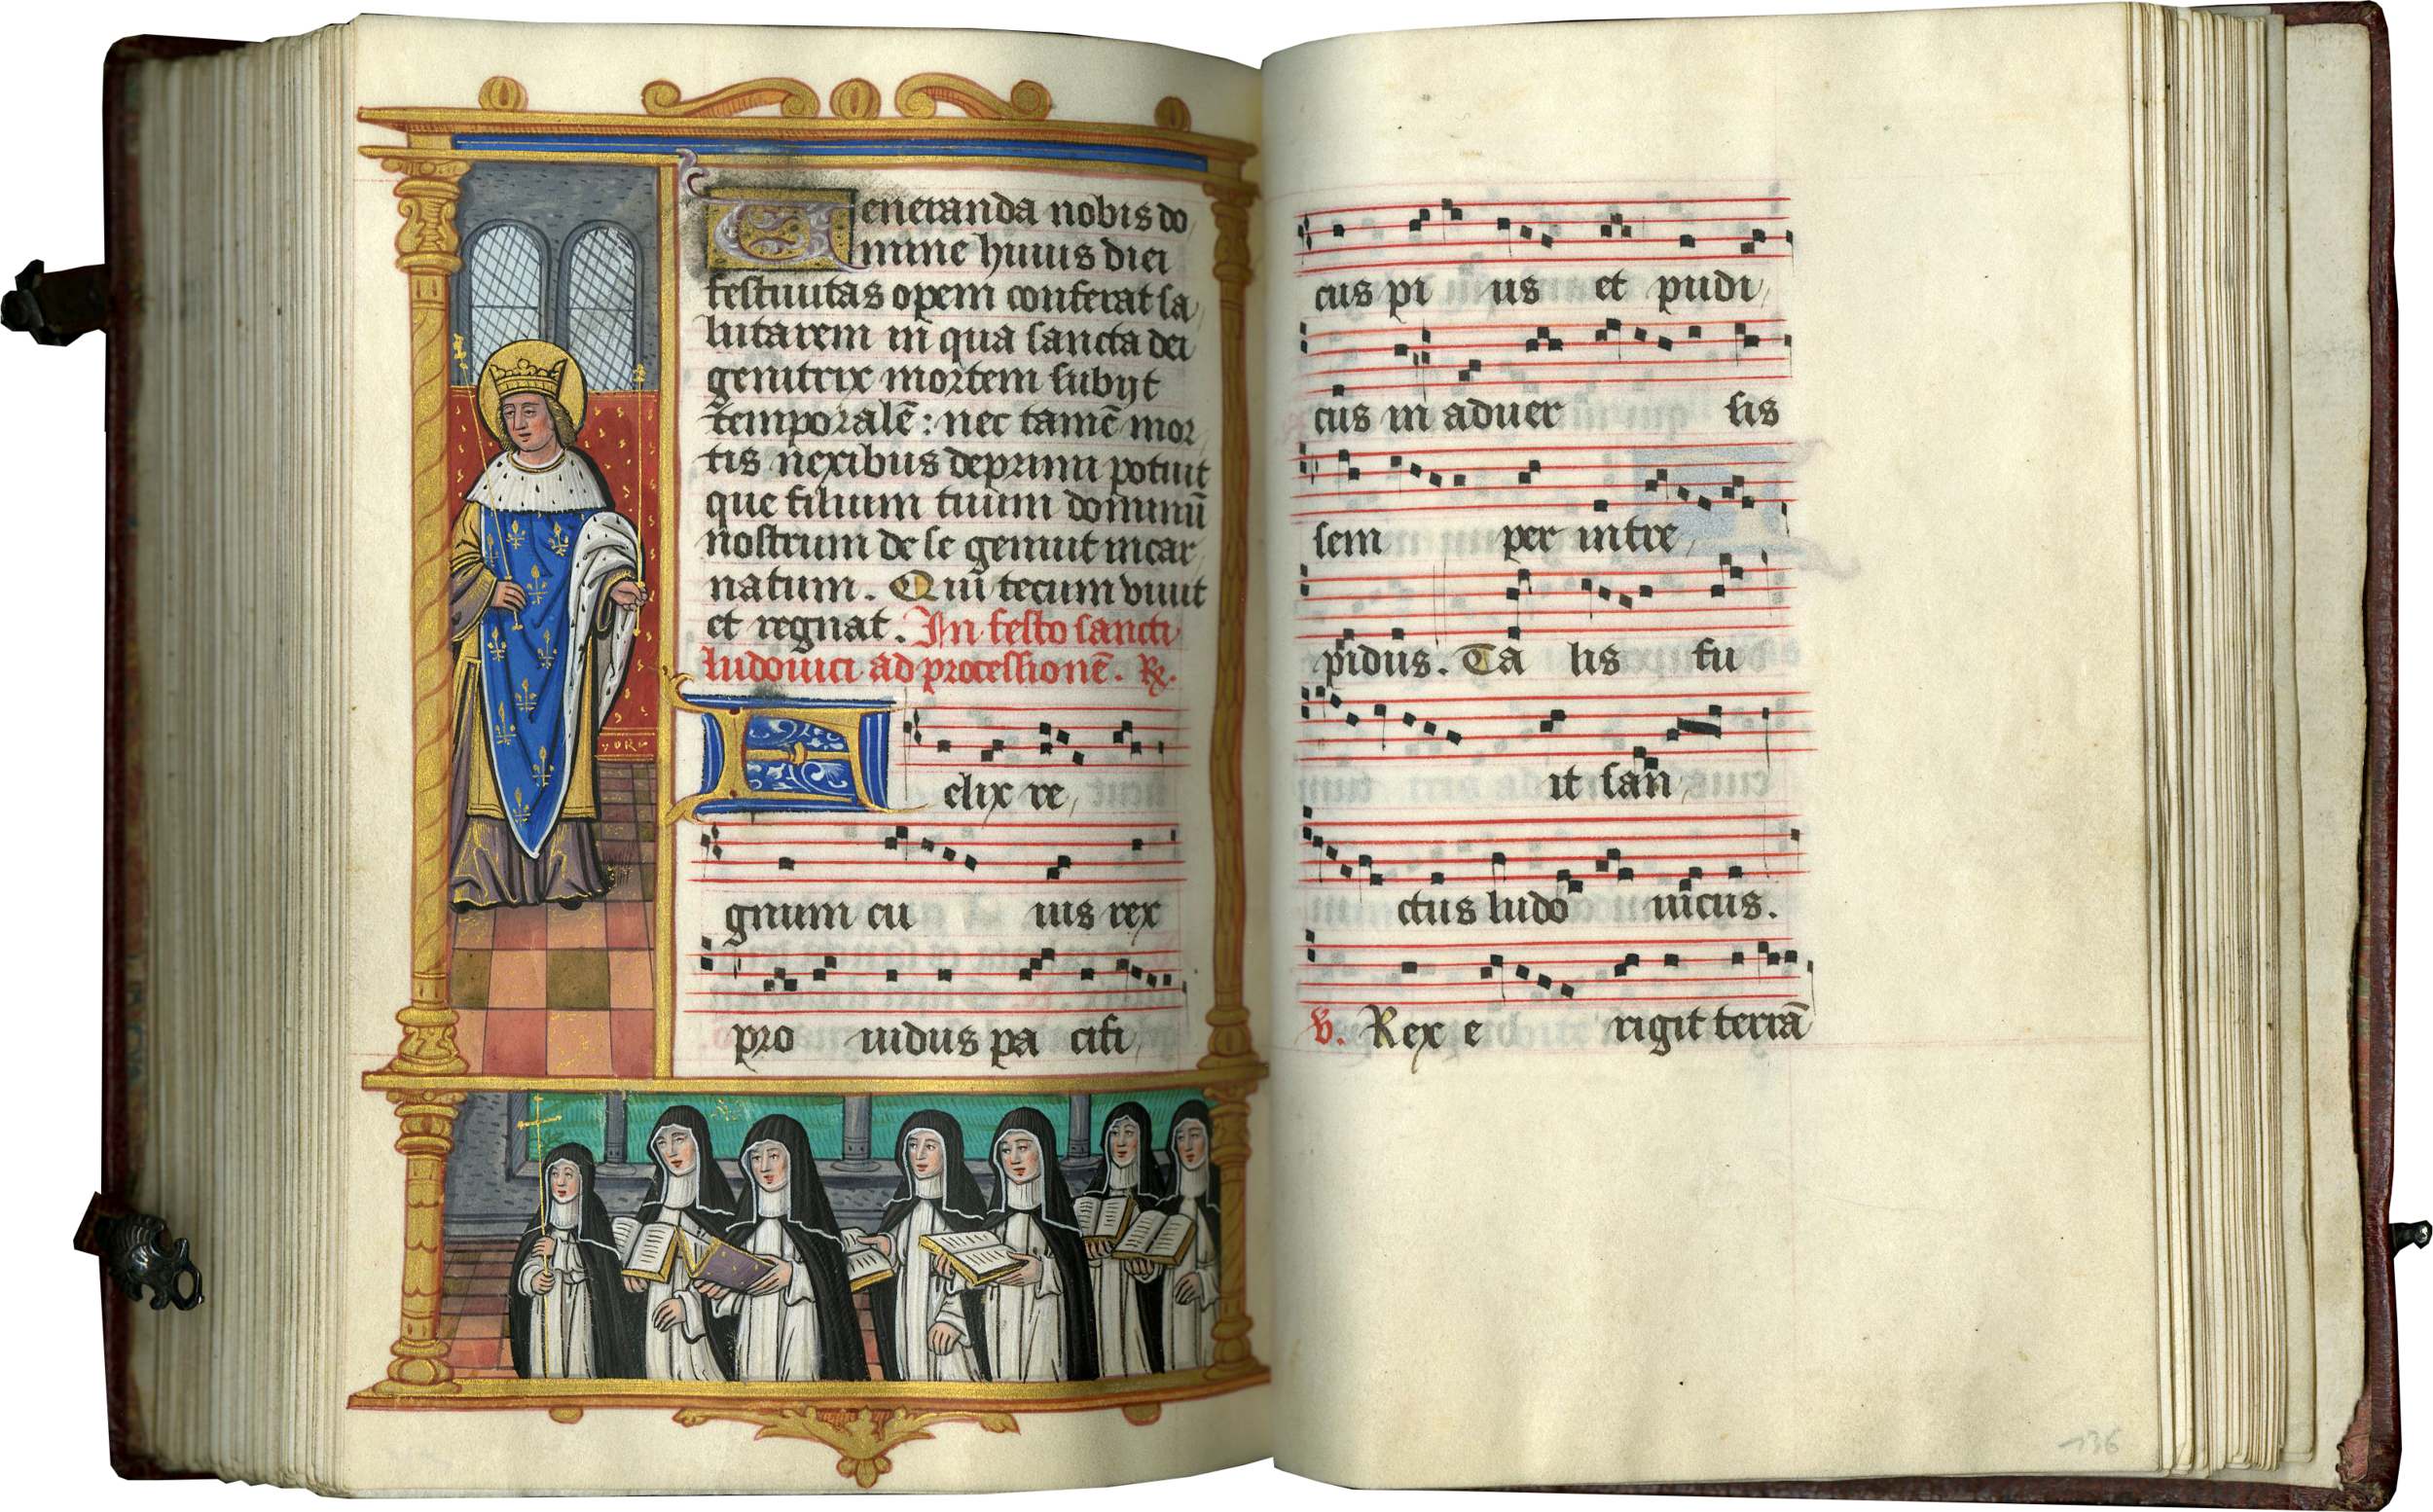 Veneranda nobis do
mine huius diei
festiuitas opem conferat sa
lutarem in qua sancta dei
genitrix mortem subijt
temporalē: nec tamē mor
tis nexibus deprimi potuit
que filium tuum dominū
nostrum de se genuit incar
natum. Qui tecum viuit
et regnat. In festo sancti
ludouici ad processionē. ℟.
Felix re
gnum cu ius rex
pro uidus pa cifi
cus pi us et pudi
cus in aduer sis
sem per intre
pidus. Ta lis fu
it san
ctus ludo uicus.
℣. Rex e rigit terrā
136